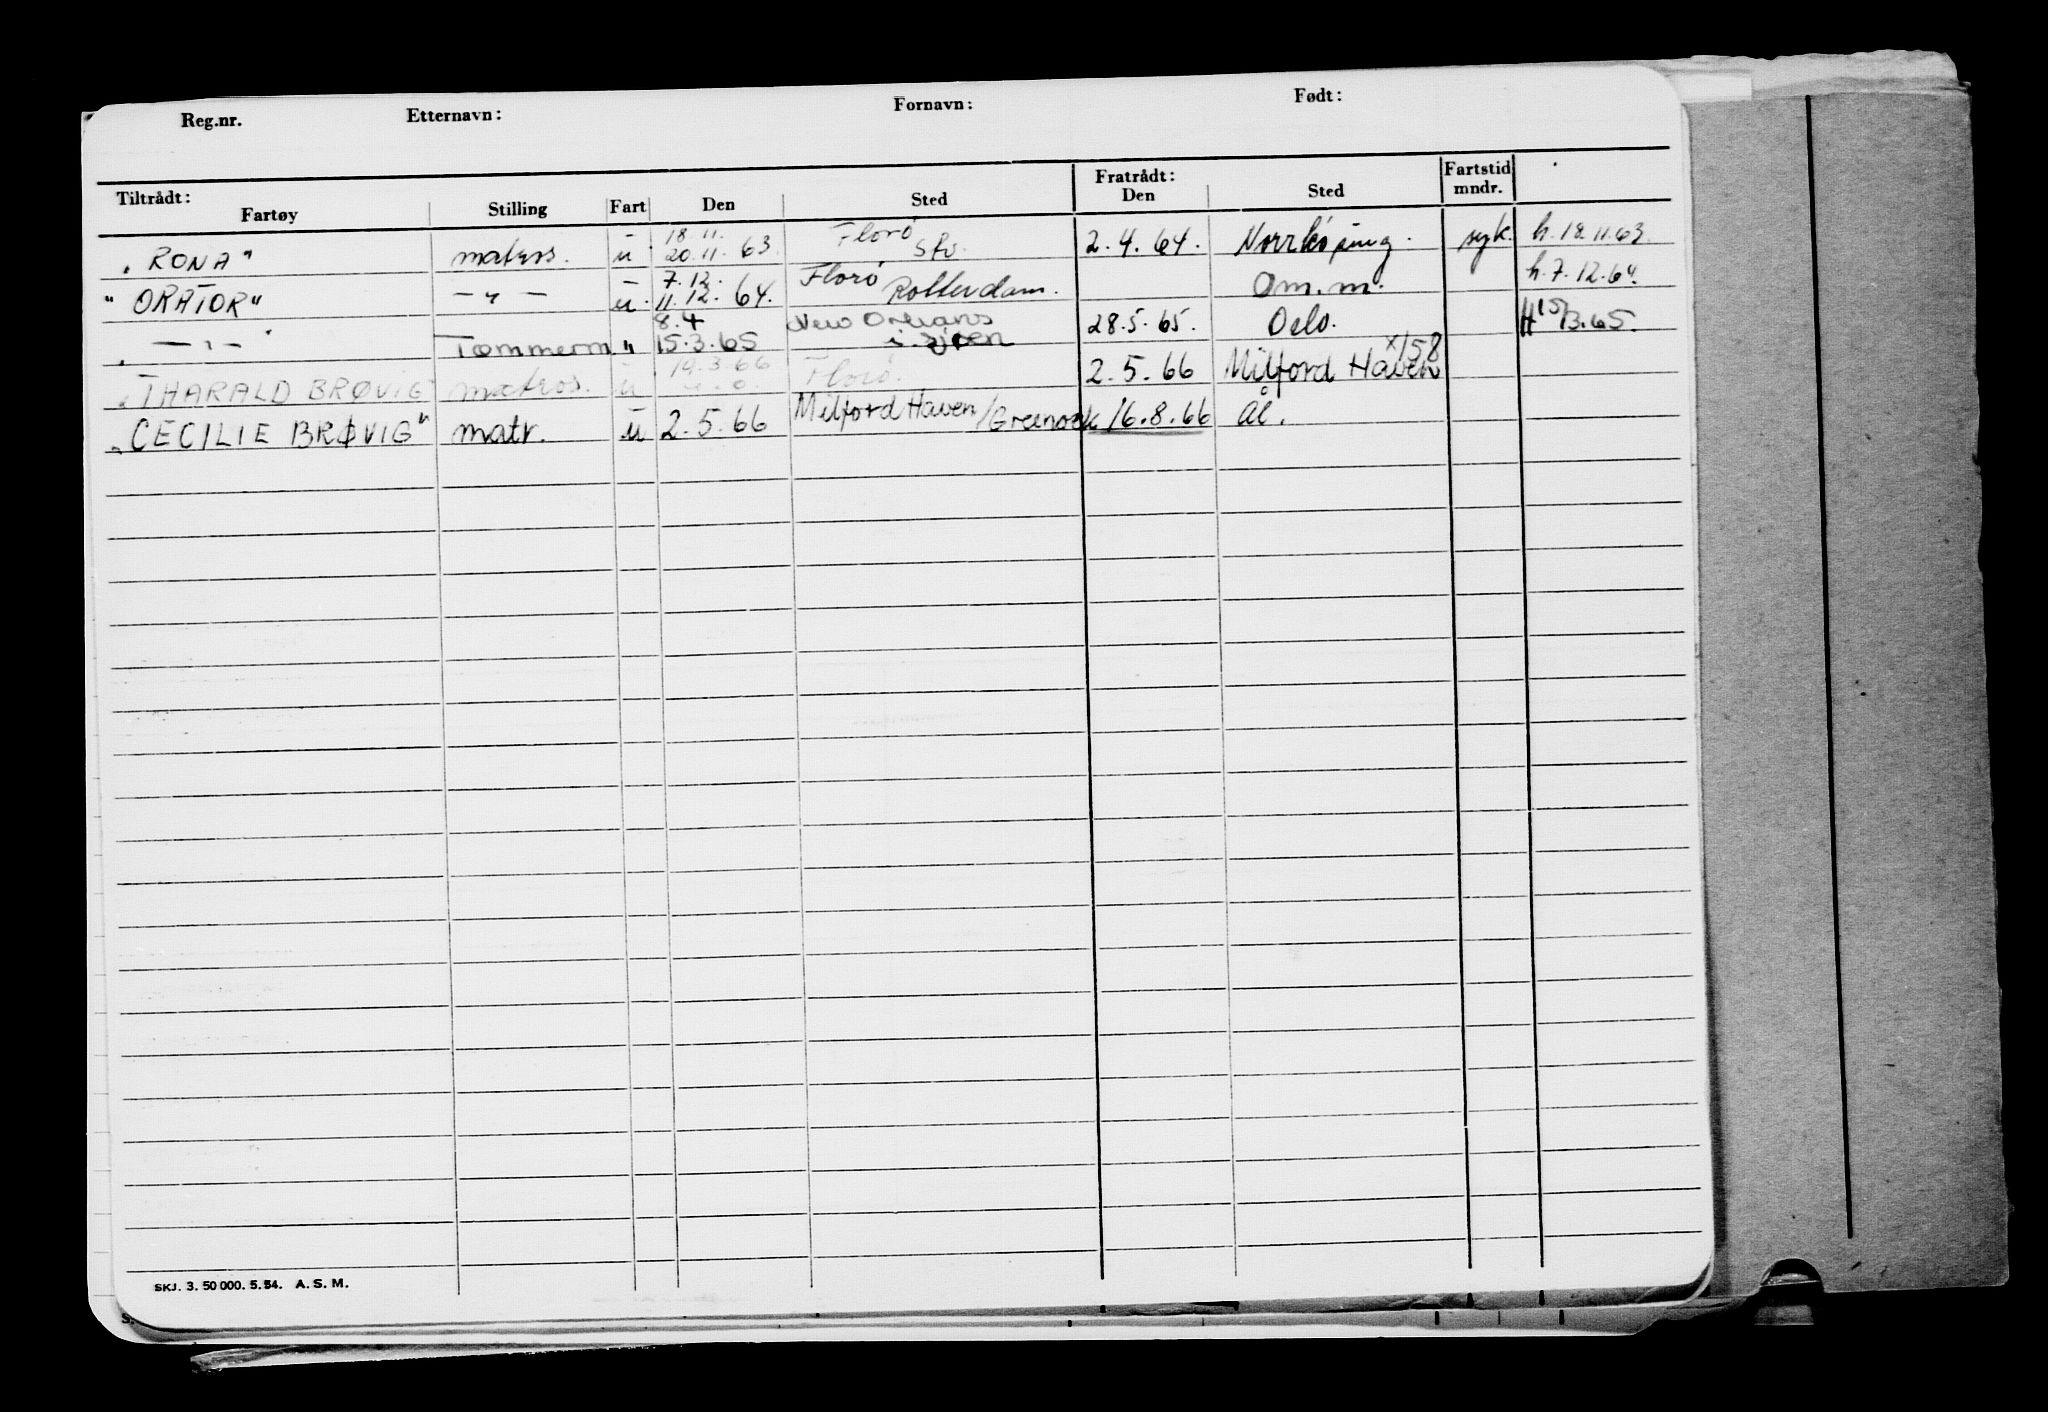 Reg.nr. Etternavn: Fornavn: Født:
Tiltrådt: Fratrådt: Fartstid
Fartøy Stilling Fart Den Sted Den Sted mndr.
18.11. Florø
"RONA" matros. u 20.11.63. Sfv. 2.4.64. Norrköping. syk. h. 18.11.63.
7.12. Florø
"ORATOR" — " — u. 11.12.64. Rotterdam. Om.m. h. 7.12.64.
8.4 New Orleans
— " — Tømmerm " 15.3.65 i sjøen 28.5.65. Oslo. H 15/3.65.
19.3.66 x/58
"THARALD BRØVIG matros. u Florø. 2.5.66 Milford Haven
"CECILIE BRØVIG" matr. u 2.5.66 Milford Haven/Greenock 16.8.66 ål.
SKJ. 3. 50 000. 5.54. A. S. M.